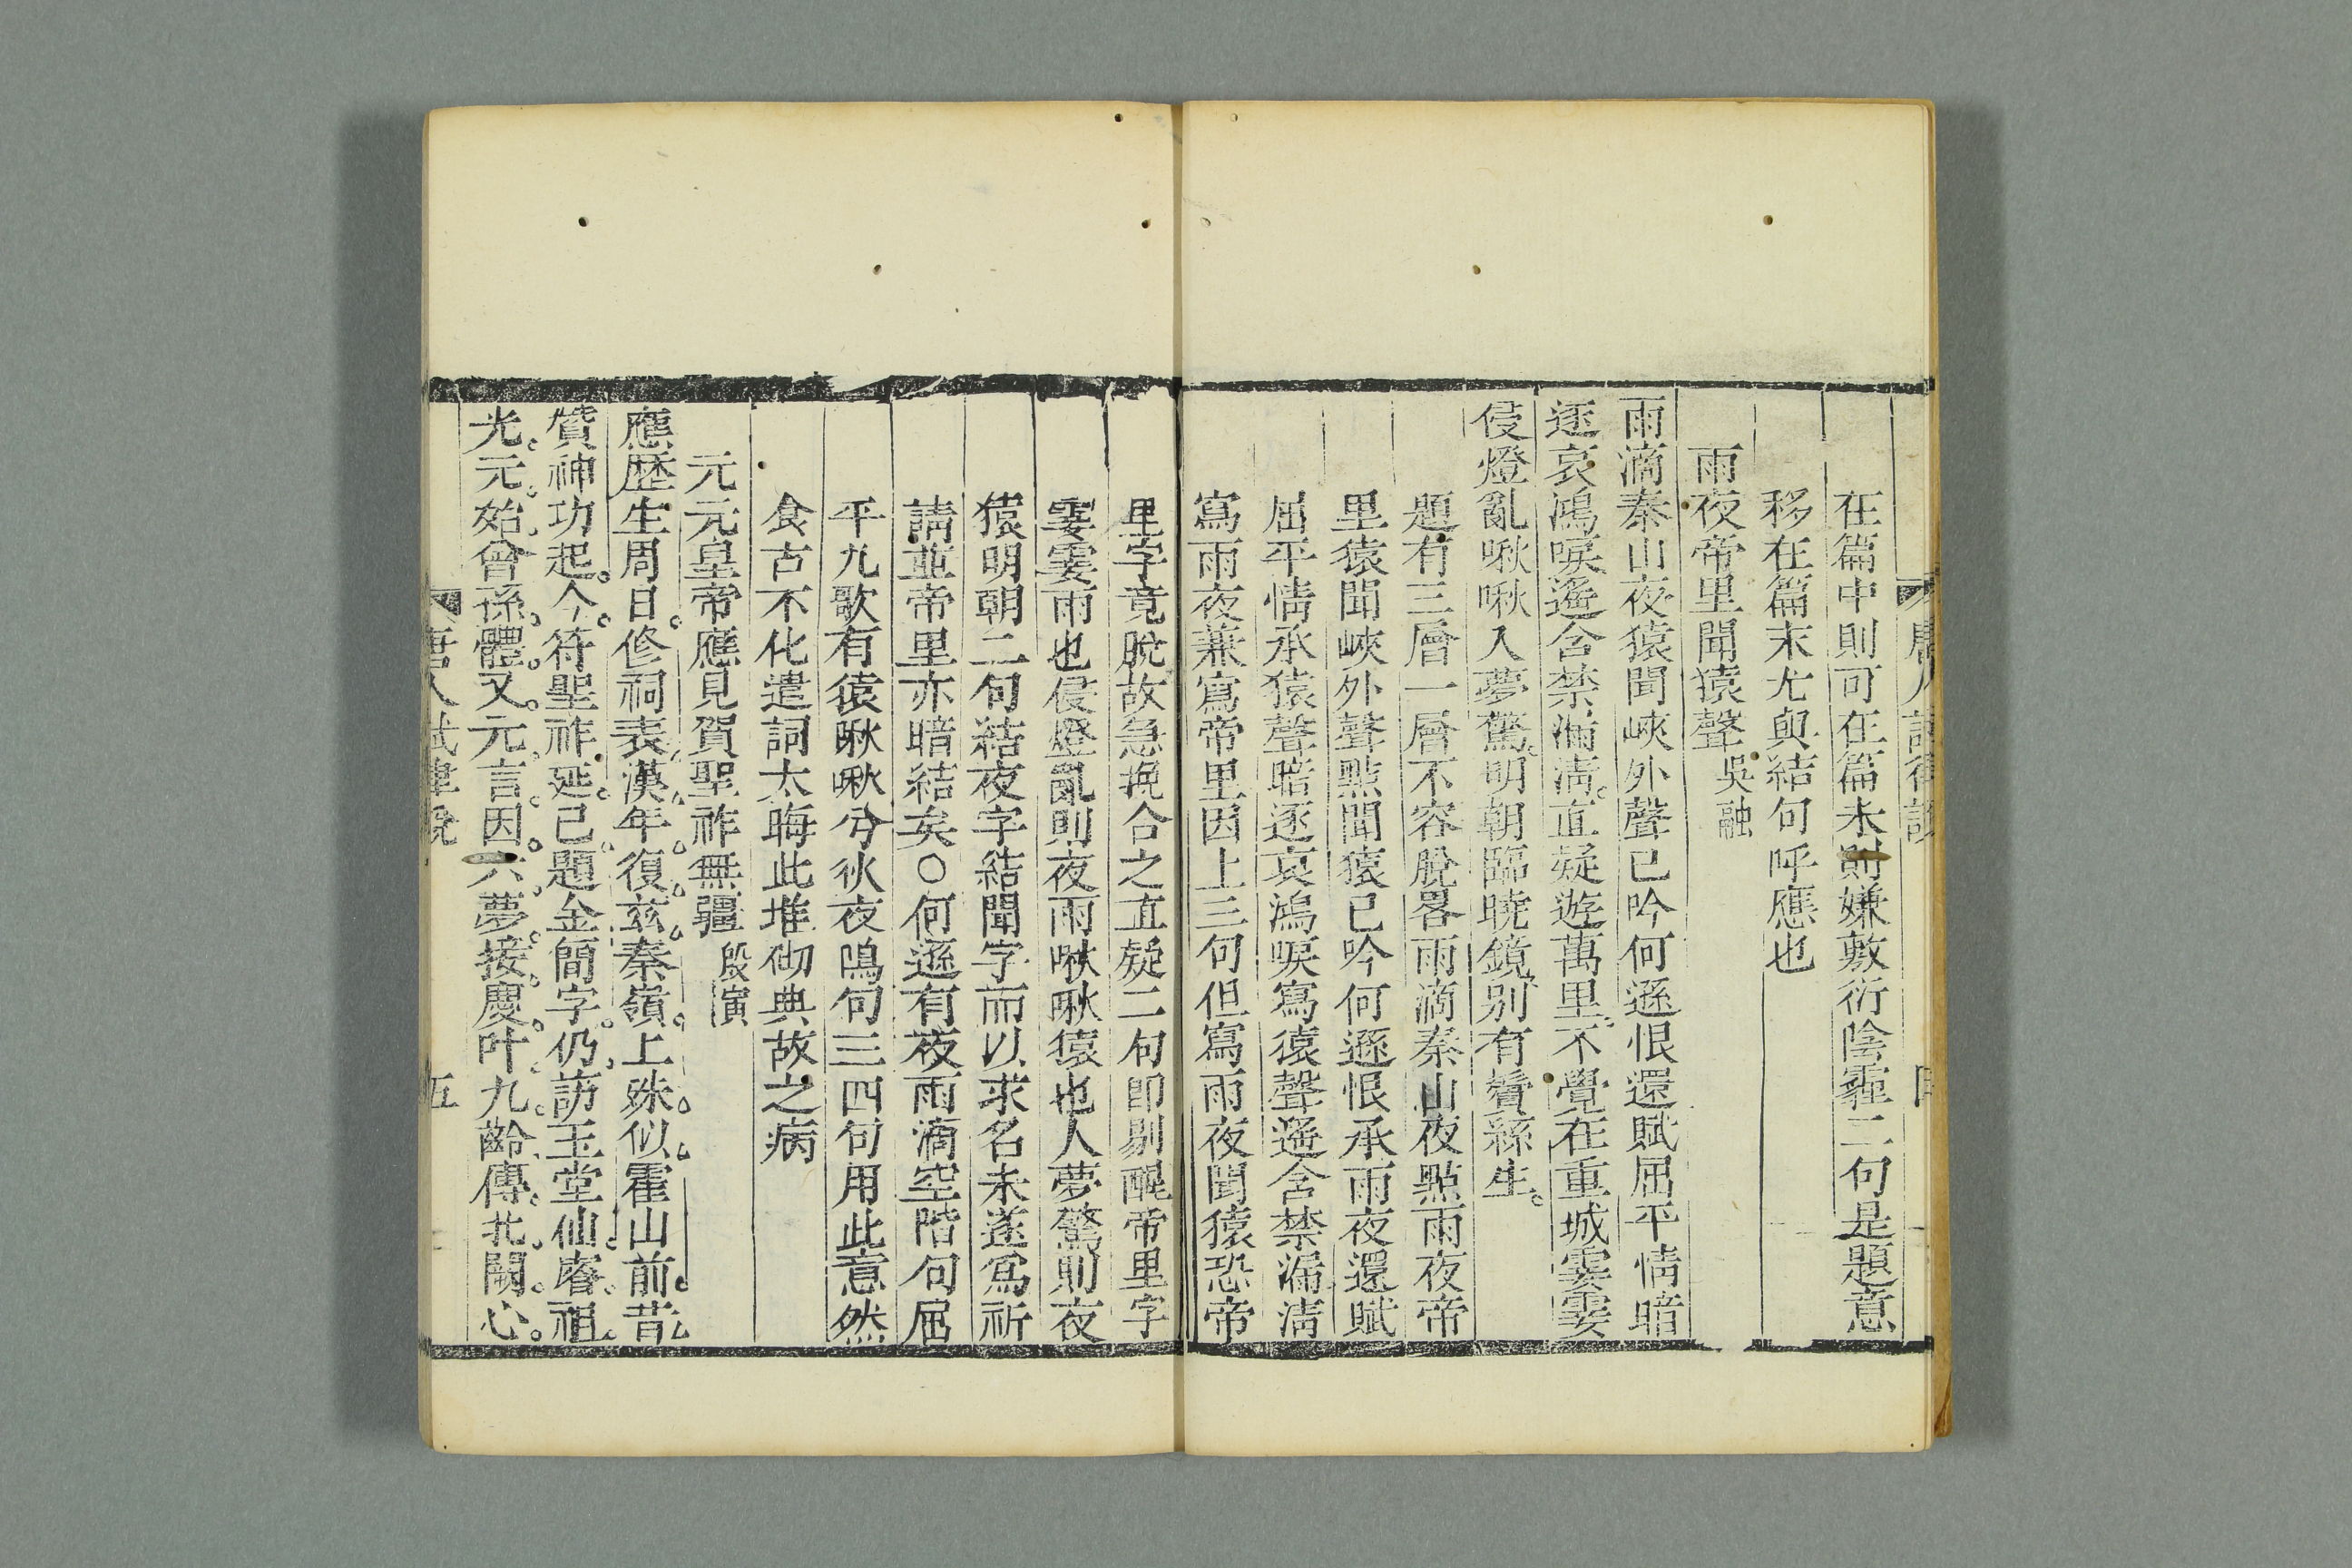 唐人試律說
在篇中則可在篇末則嫌敷衍陰霾二句是題意
移在篇末尤與結句呼應也
雨夜帝里聞猿聲 吳融
雨滴秦山夜猿聞峽外聲已吟何遜恨還賦屈平情暗
逐哀鴻唳遙含禁漏淸直疑遊萬里不覺在重城霎霎
侵燈亂啾啾入夢驚明朝臨曉鏡別有鬢絲生
題有三層一層不容脫畧雨滴秦山夜點雨夜帝
里猿聞峽外聲點聞猿已吟何遜恨承雨夜還賦
屈平情承猿聲暗逐哀鴻唳寫猿聲遙含禁漏淸
寫雨夜兼寫帝里因上三句但寫雨夜聞猿恐帝
里字竟脫故急挽合之直疑二句卽剔醒帝里字
霎霎雨也侵燈亂則夜雨啾啾猿也人夢驚則夜
猿明朝二句結夜字結聞字而以求名未遂爲祈
請並帝里亦暗結矣○何遜有夜雨滴空階句屈
平九歌有猿啾啾兮狖夜鳴句三四句用此意然
食古不化遣詞太晦此堆砌典故之病
元元皇帝應見賀聖祚無疆 殷寅
應歷生周日修祠表漢年復茲秦嶺上殊似霍山前昔
贊神功起今符聖祚延已題金簡字仍訪玉堂仙睿祖
光元始曾孫體又元言因六夢接慶叶九齡傳北闕心
唐人試律說 五